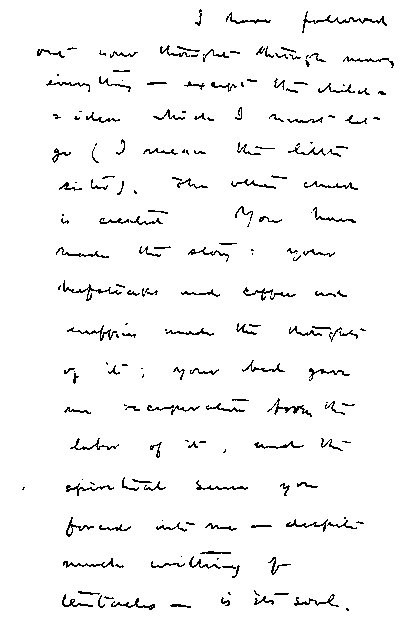 I have followed
out your thought through nearly
everything — except the child
idea which I must let
go (I mean the little
sister). The other child
is created You have
made the story: your
beefsteaks and coffee and
muffins made the thought
of it; your bed gave
me recuperation from the
labor of it, and the
spiritual sense you
forced into me — despite
much writhing of
tentacles — is its soul.